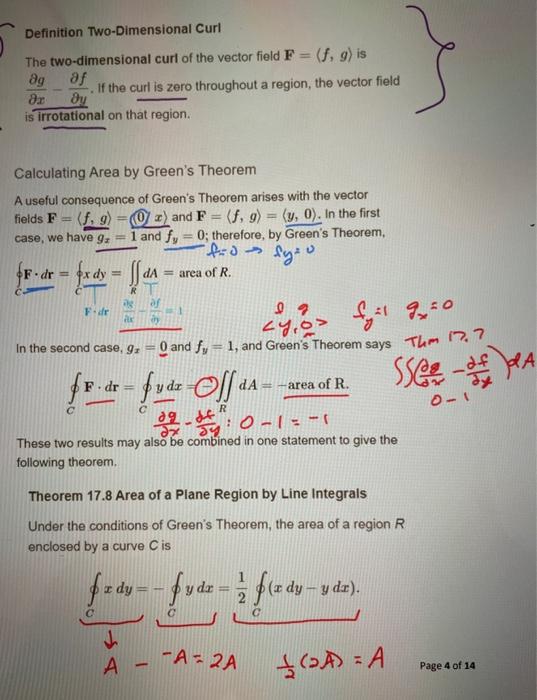 Definition Two-Dimensional Curl
The two-dimensional curl of the vector field F = ⟨f, g⟩ is
∂g/∂x − ∂f/∂y. If the curl is zero throughout a region, the vector field
is irrotational on that region.
Calculating Area by Green's Theorem
A useful consequence of Green's Theorem arises with the vector
fields F = ⟨f, g⟩ = ⟨0, x⟩ and F = ⟨f, g⟩ = ⟨y, 0⟩. In the first
case, we have gₓ = 1 and f_y = 0; therefore, by Green's Theorem,
f=0 → f_y=0
∮_C F · dr = ∮_C x dy = ∬_R dA = area of R.
F·dr ∂g/∂x − ∂f/∂y = 1
f g
<y,0> f_y=1 gₓ=0
In the second case, gₓ = 0 and f_y = 1, and Green's Theorem says
Thm 17.7
∮_C F · dr = ∮_C y dx = −∬_R dA = −area of R.
∬(∂g/∂x − ∂f/∂y)dA
0−1
∂g/∂x − ∂f/∂y : 0−1=−1
These two results may also be combined in one statement to give the
following theorem.
Theorem 17.8 Area of a Plane Region by Line Integrals
Under the conditions of Green's Theorem, the area of a region R
enclosed by a curve C is
∮_C x dy = − ∮_C y dx = 1/2 ∮_C (x dy − y dx).
↓
A − −A = 2A 1/2 (2A) = A
Page 4 of 14